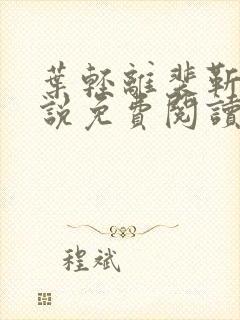 葉輕離裴靳
說免費閱讀
程斌